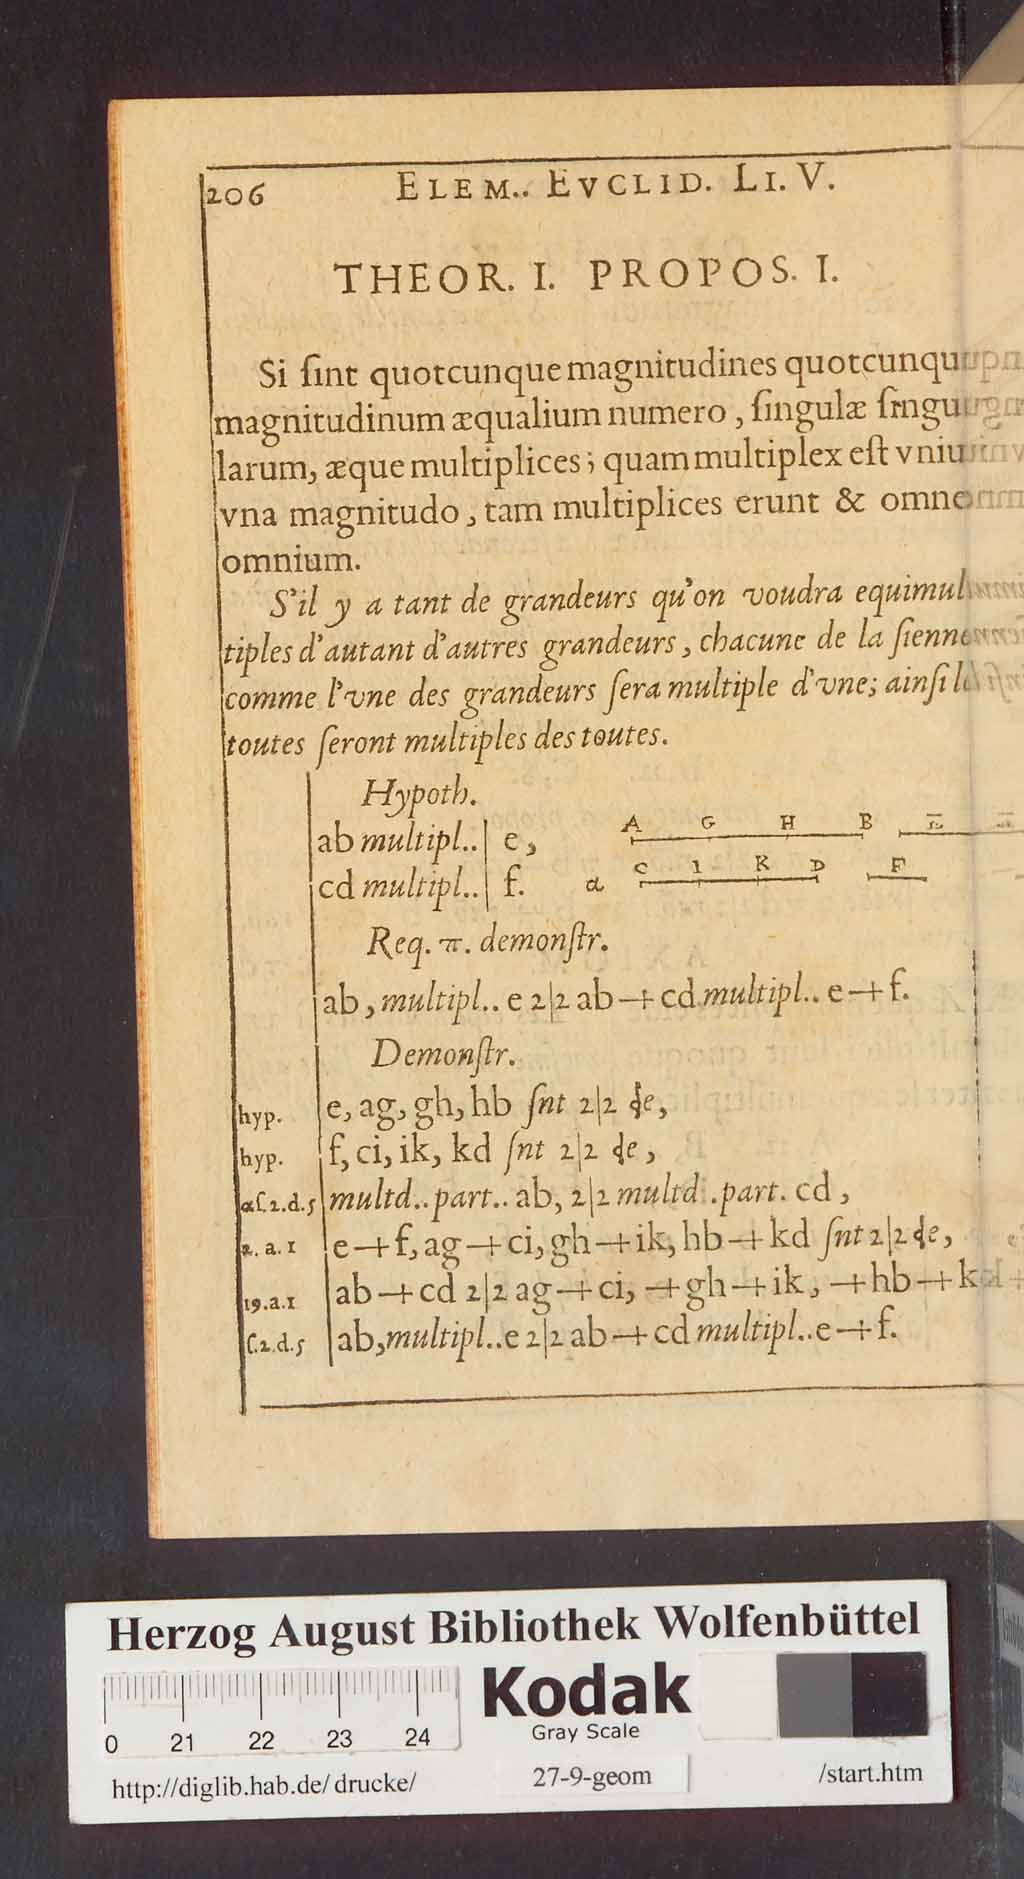 206 ELEM.. EVCLID. LI. V.
THEOR. I. PROPOS. I.
Si ſint quotcunque magnitudines quotcunqu
magnitudinum æqualium numero, ſingulæ ſingu
larum, æque multiplices; quam multiplex eſt vniu
vna magnitudo, tam multiplices erunt & omne
omnium.
S'il y a tant de grandeurs qu'on voudra equimul
tiples d'autant d'autres grandeurs, chacune de la ſienne
comme l'vne des grandeurs ſera multiple d'vne; ainſi le
toutes ſeront multiples des toutes.
Hypoth.
ab multipl..| e,
cd multipl..| f.
A G H B E
α C I K D F
Req. π. demonſtr.
ab, multipl.. e 2|2 ab + cd multipl.. e + f.
Demonſtr.
hyp. e, ag, gh, hb ſnt 2|2 de,
hyp. f, ci, ik, kd ſnt 2|2 de,
α ſ. 2. d. 5 multd.. part.. ab, 2|2 multd. part. cd,
2. a. 1 e + f, ag + ci, gh + ik, hb + kd ſnt 2|2 de,
19. a. 1 ab + cd 2|2 ag + ci, + gh + ik, + hb + kd
ſ. 2. d. 5 ab, multipl.. e 2|2 ab + cd multipl.. e + f.
Herzog August Bibliothek Wolfenbüttel
Kodak
Gray Scale
0 21 22 23 24
http://diglib.hab.de/drucke/ 27-9-geom /start.htm